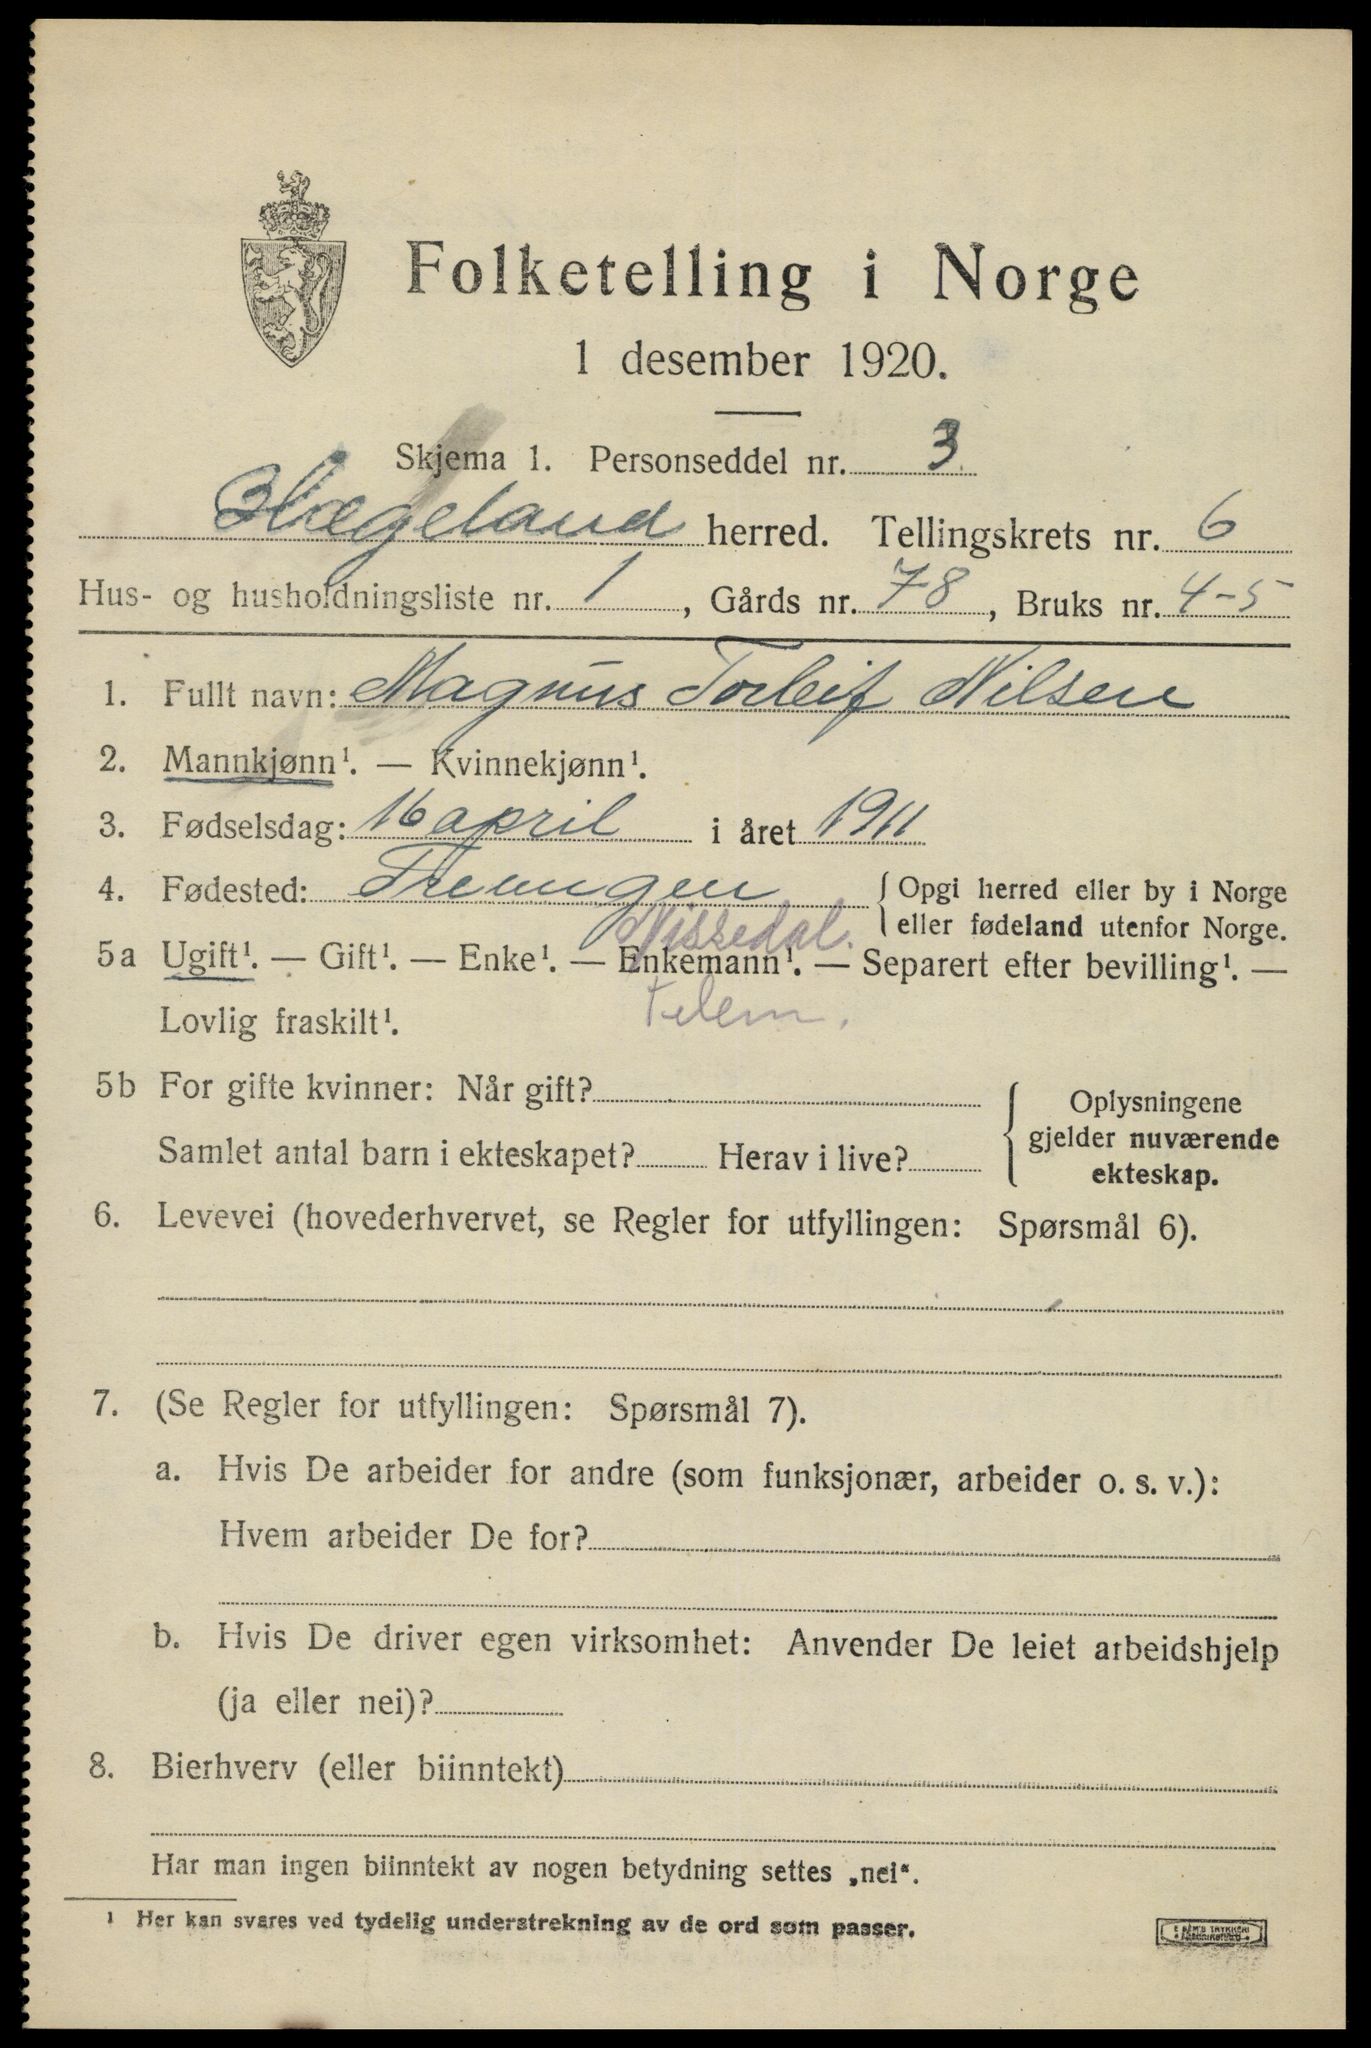 Folketelling i Norge
1 desember 1920.
Skjema 1. Personseddel nr. 3
Hægeland herred. Tellingskrets nr. 6
Hus- og husholdningsliste nr. 1, Gårds nr. 78, Bruks nr. 4-5
1. Fullt navn: Magnus Torleif Nilsen
2. Mannkjønn¹. — Kvinnekjønn¹.
3. Fødselsdag: 16 april i året 1911
4. Fødested: Treungen { Opgi herred eller by i Norge
eller fødeland utenfor Norge.
Nissedal.
5a Ugift¹. — Gift¹. — Enke¹. — Enkemann¹. — Separert efter bevilling¹. —
Lovlig fraskilt¹. Telem.
5b For gifte kvinner: Når gift? { Oplysningene
gjelder nuværende
Samlet antal barn i ekteskapet? Herav i live?
ekteskap.
6. Levevei (hovederhvervet, se Regler for utfyllingen: Spørsmål 6).
7. (Se Regler for utfyllingen: Spørsmål 7).
a. Hvis De arbeider for andre (som funksjonær, arbeider o. s. v.):
Hvem arbeider De for?
b. Hvis De driver egen virksomhet: Anvender De leiet arbeidshjelp
(ja eller nei)?
8. Bierhverv (eller biinntekt)
Har man ingen biinntekt av nogen betydning settes „nei“.
¹ Her kan svares ved tydelig understrekning av de ord som passer.